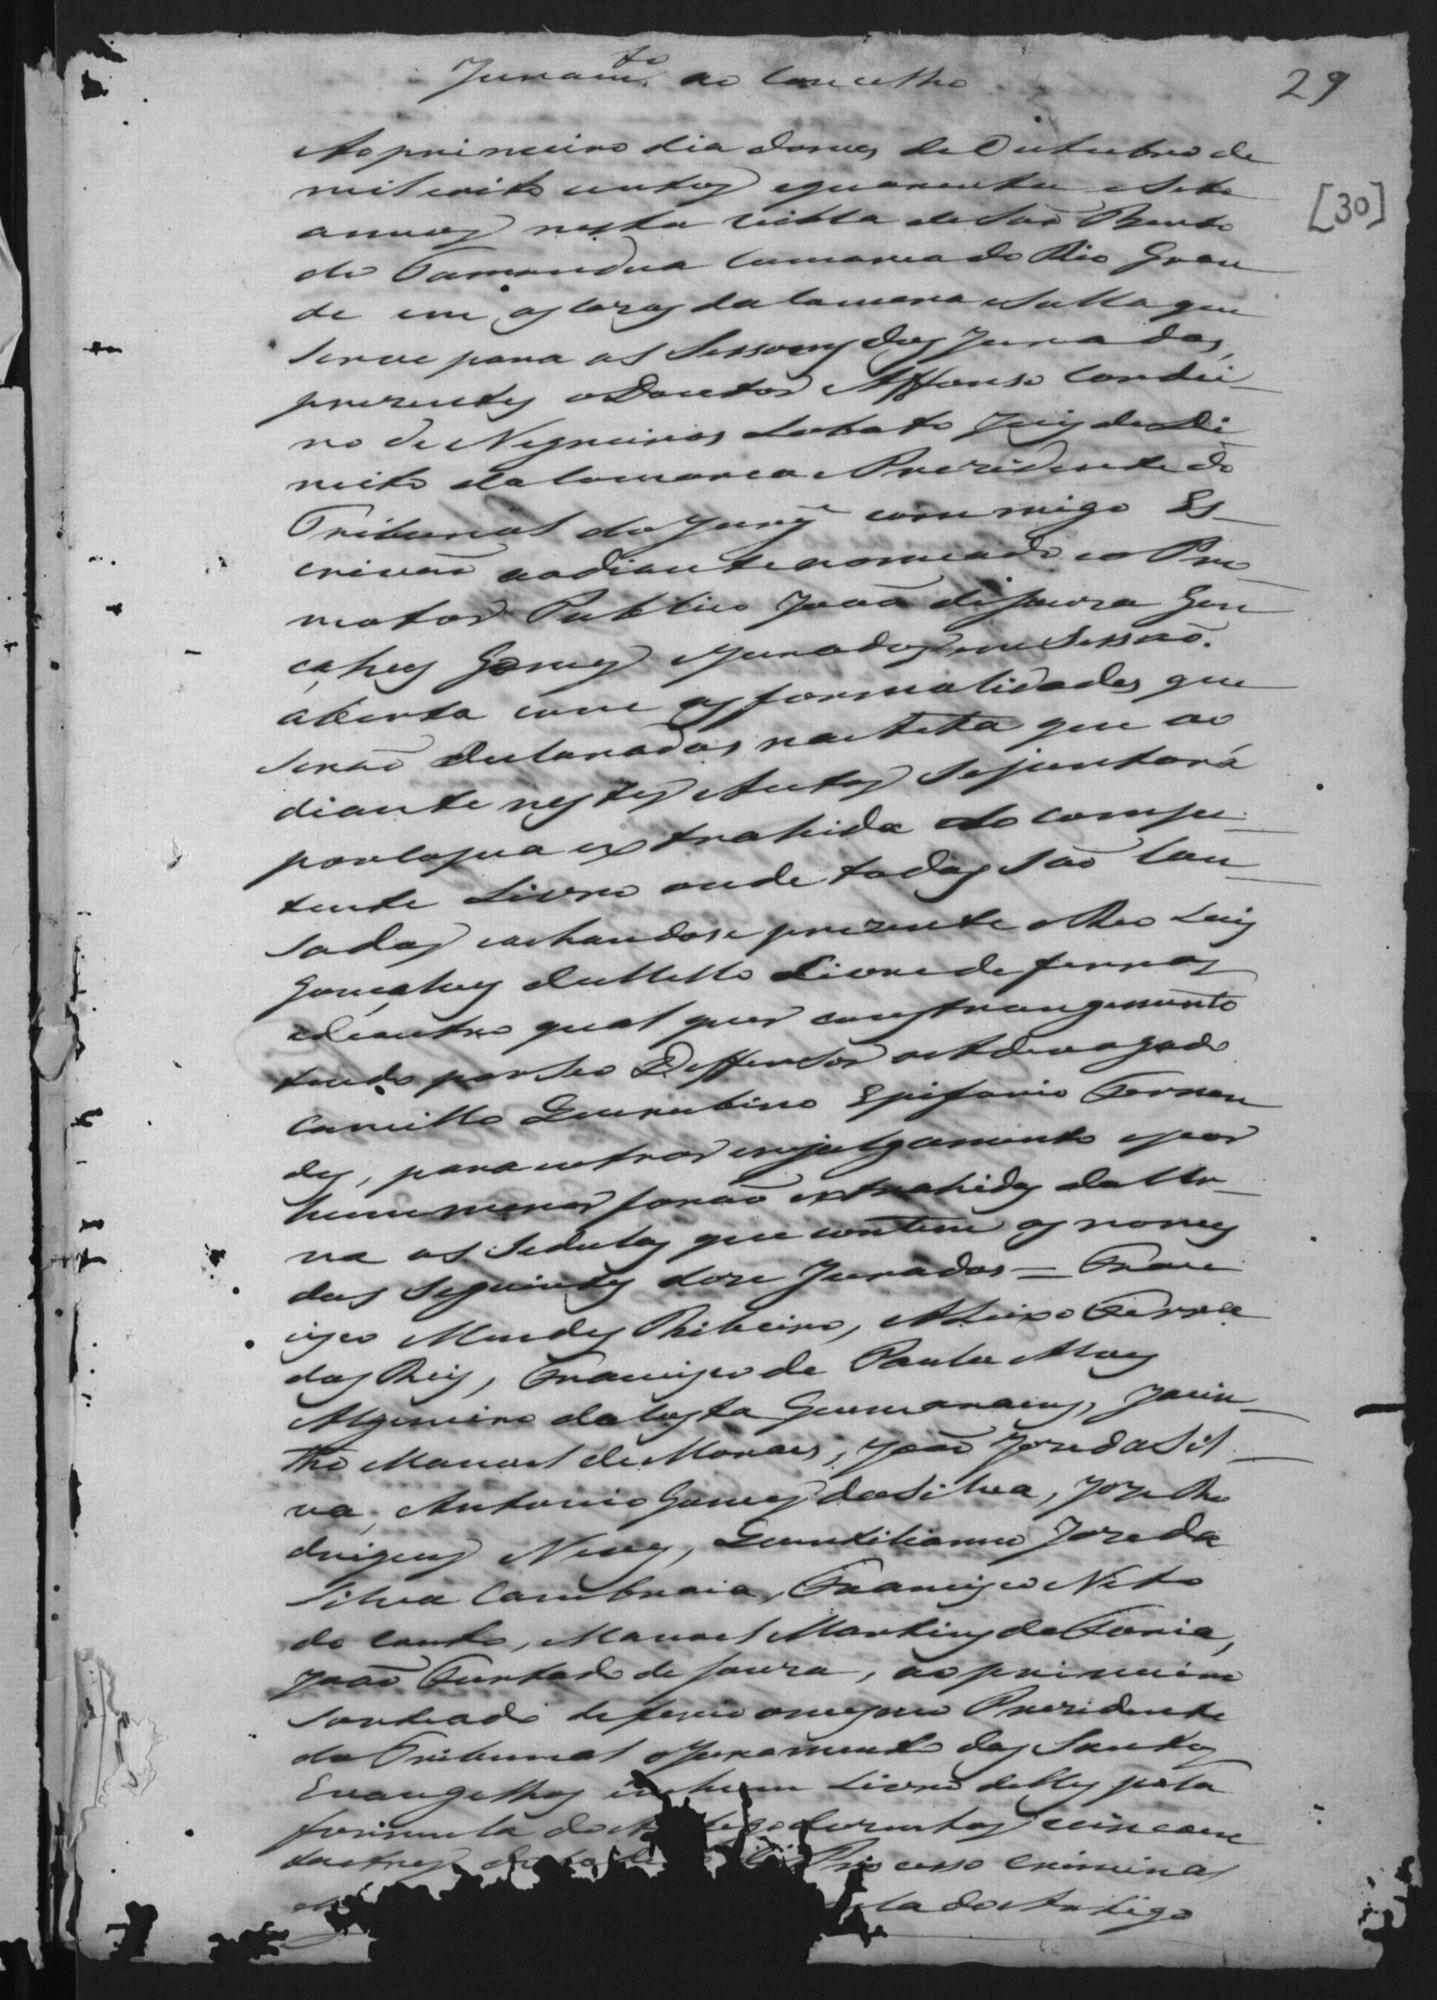 Juram.to ao Concelho
29
[30]
Ao primeiro dia domes de Outubro de
mil oito centos equarenta esete
annos nesta Villa de São Bento
do Tamandua Comarca do Rio Gran
de em as cazas da Camera e Salla que
serve para as Sessoens dos Jurados,
prezentes o Doutor Affonso Cordei-
ro de Negreiros Lobato Juiz de Di
reito da Comarca e Prezidente do
Tribunal do Jury commigo Es-
crivão aodiante nomeado eo Pro-
motor Publico João de Souza Gon
çalves Gomes eJurados em Sessão.
aberta com as formalidades que
serão declaradas na Acta que ao
diante nestes Autos sejuntará
porCopia extrahida do Compe-
tente Livro onde todas são lan-
sadas eachandose prezente o Reo Luis
Gonçalves de Mello Livre de ferros
edeoutro qual quer constrangimento
tendo por seo Deffensor oAdevogado
Camillo Querubino Epifanio Fernan
des, para entrar emjulgamento epor
hum menor forão extrahidas da Ur-
na as Sedulas que contem os nomes
dos Seguintes doze Jurados = Fran
cisco Mendes Ribeiro, Aleixo Ferra
dos Reis, Francisco de Paula Alves
Algemiro da Costa Guimaraens, Jacin-
tho Manoel de Moraes, João Joze da Sil-
va, Antonio Gomes da Silva, Joze Ro
drigues Neves, Quintilianno Joze da
Silva Cambraia, Francisco Neto
do Couto, Manoel Martins de Faria,
João Furtado de Souza, ao primeiro
sorteado deferio omesmo Prezidente
do Tribunal oJuramento dos Santos
Evangelhos em hum Livro delles pela
formula do duzentos cincoen
taetres Processo Criminal
do Artigo